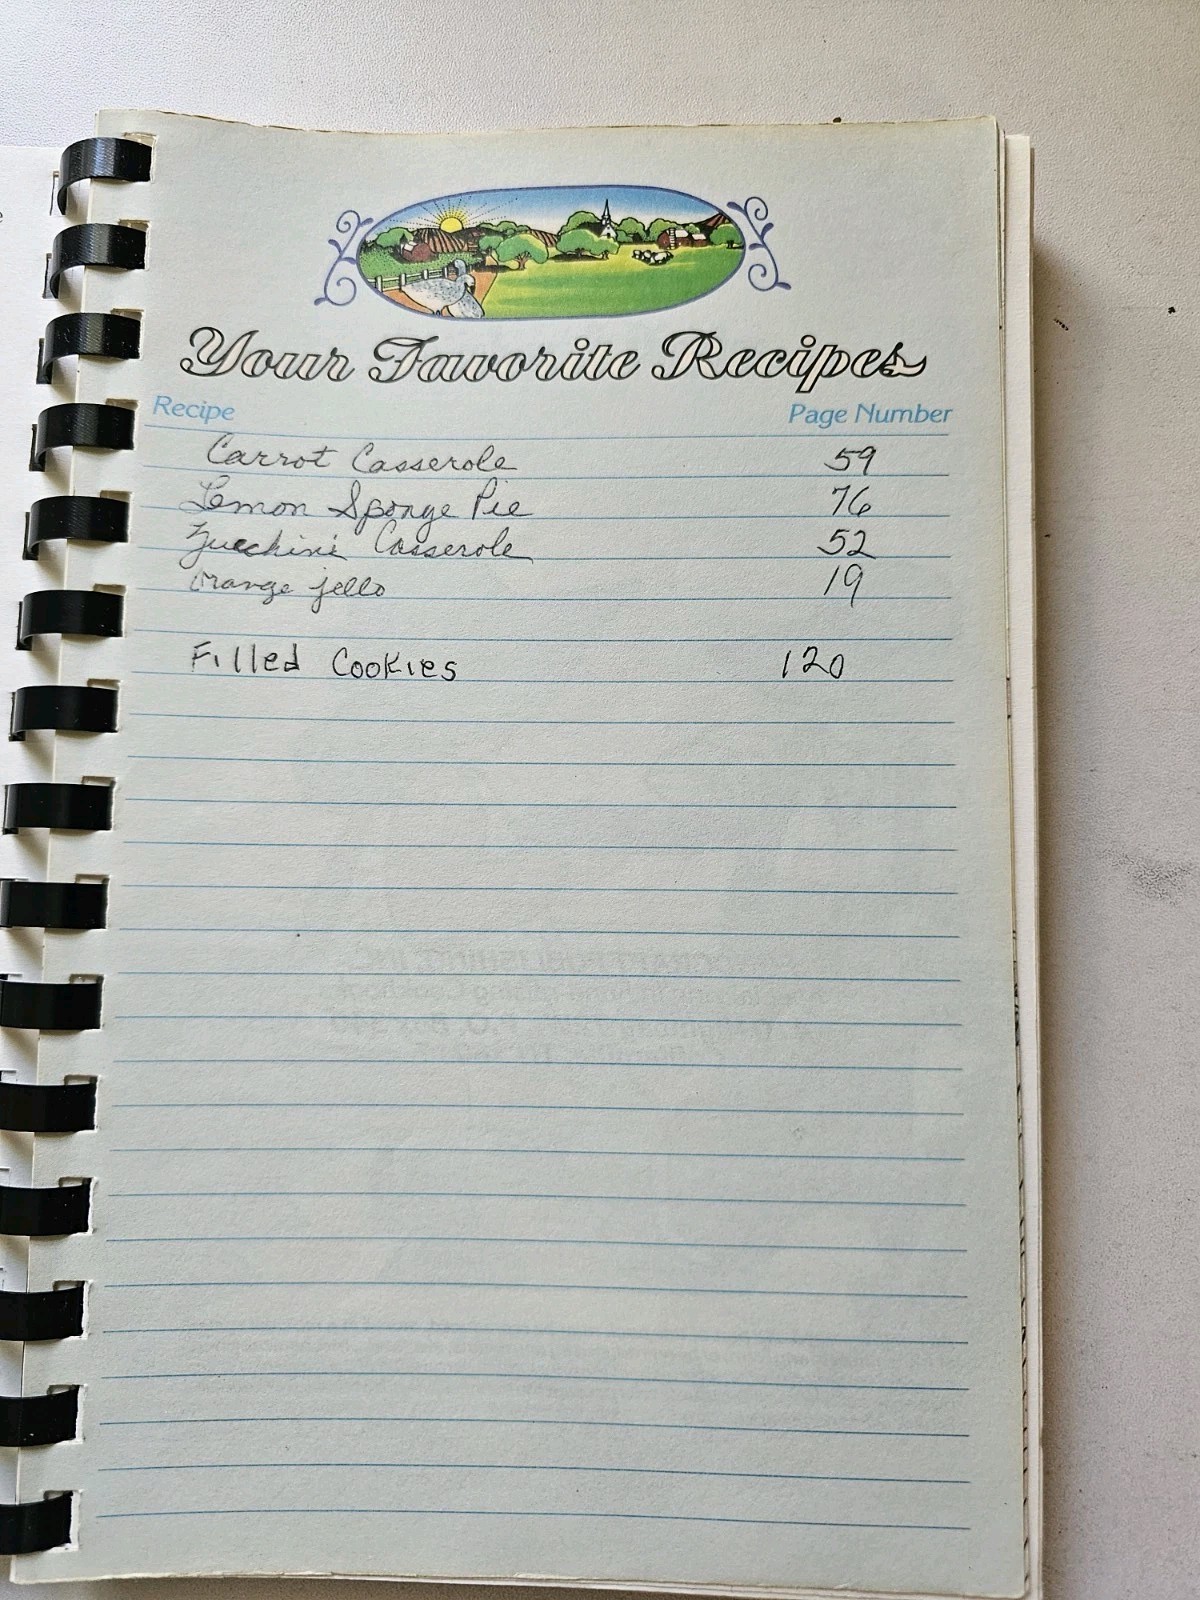 Your Favorite Recipes
Recipe Page Number
Carrot Casserole 59
Lemon Sponge Pie 76
Zucchini Casserole 52
Orange jello 19
Filled Cookies 120